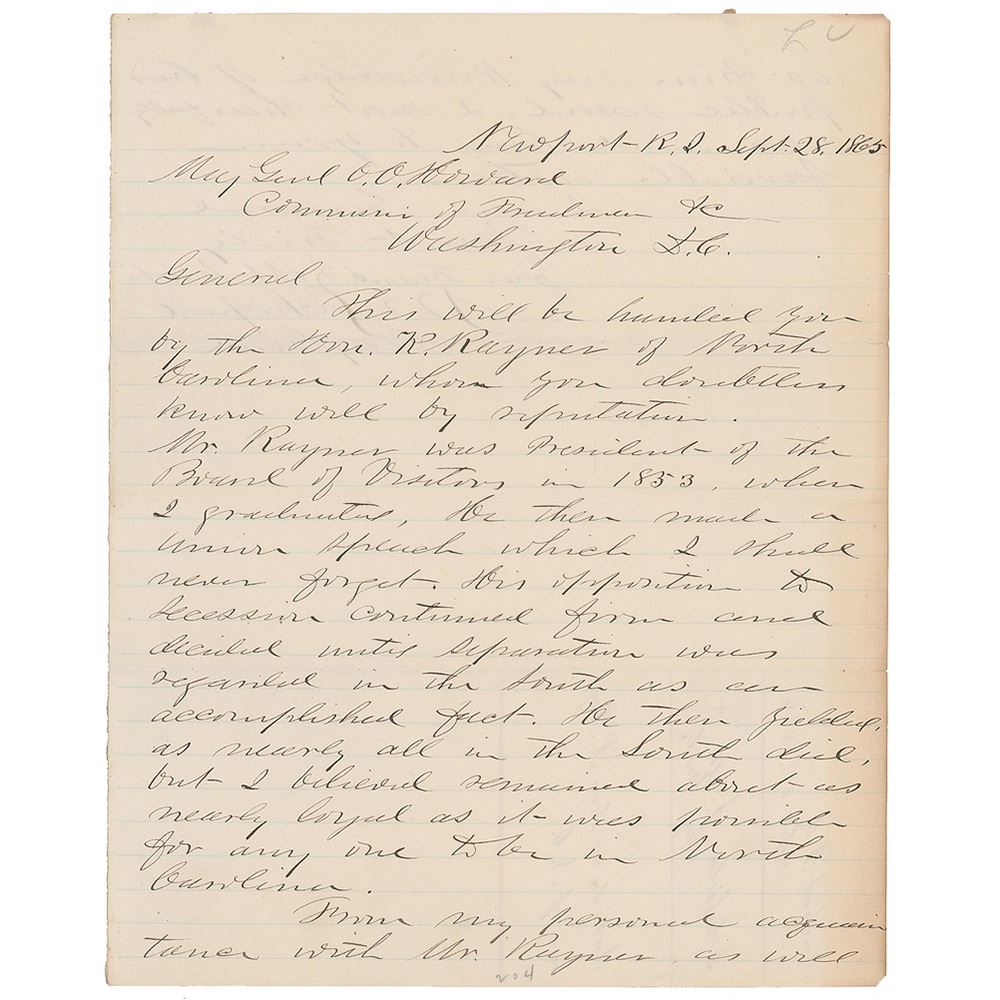 L U
Newport R.I. Sept. 28. 1865
Maj Genl O.O. Howard
Commissr of Freedmen &c
Washington D.C.
General
This will be handed you
by the Hon. K. Rayner of North
Carolina, whom you doubtless
know will by reputation.
Mr. Rayner was President of the
Board of Visitors in 1853, when
I graduated, He then made a
Union speech which I shall
never forget. His opposition to
secession continued firm and
decided until separation was
regarded in the South as an
accomplished fact. He then yielded,
as nearly all in the South did,
but I believed remained about as
nearly loyal as it was possible
for any one to be in North
Carolina.
From my personal acquain
tance with Mr. Rayner as well
204